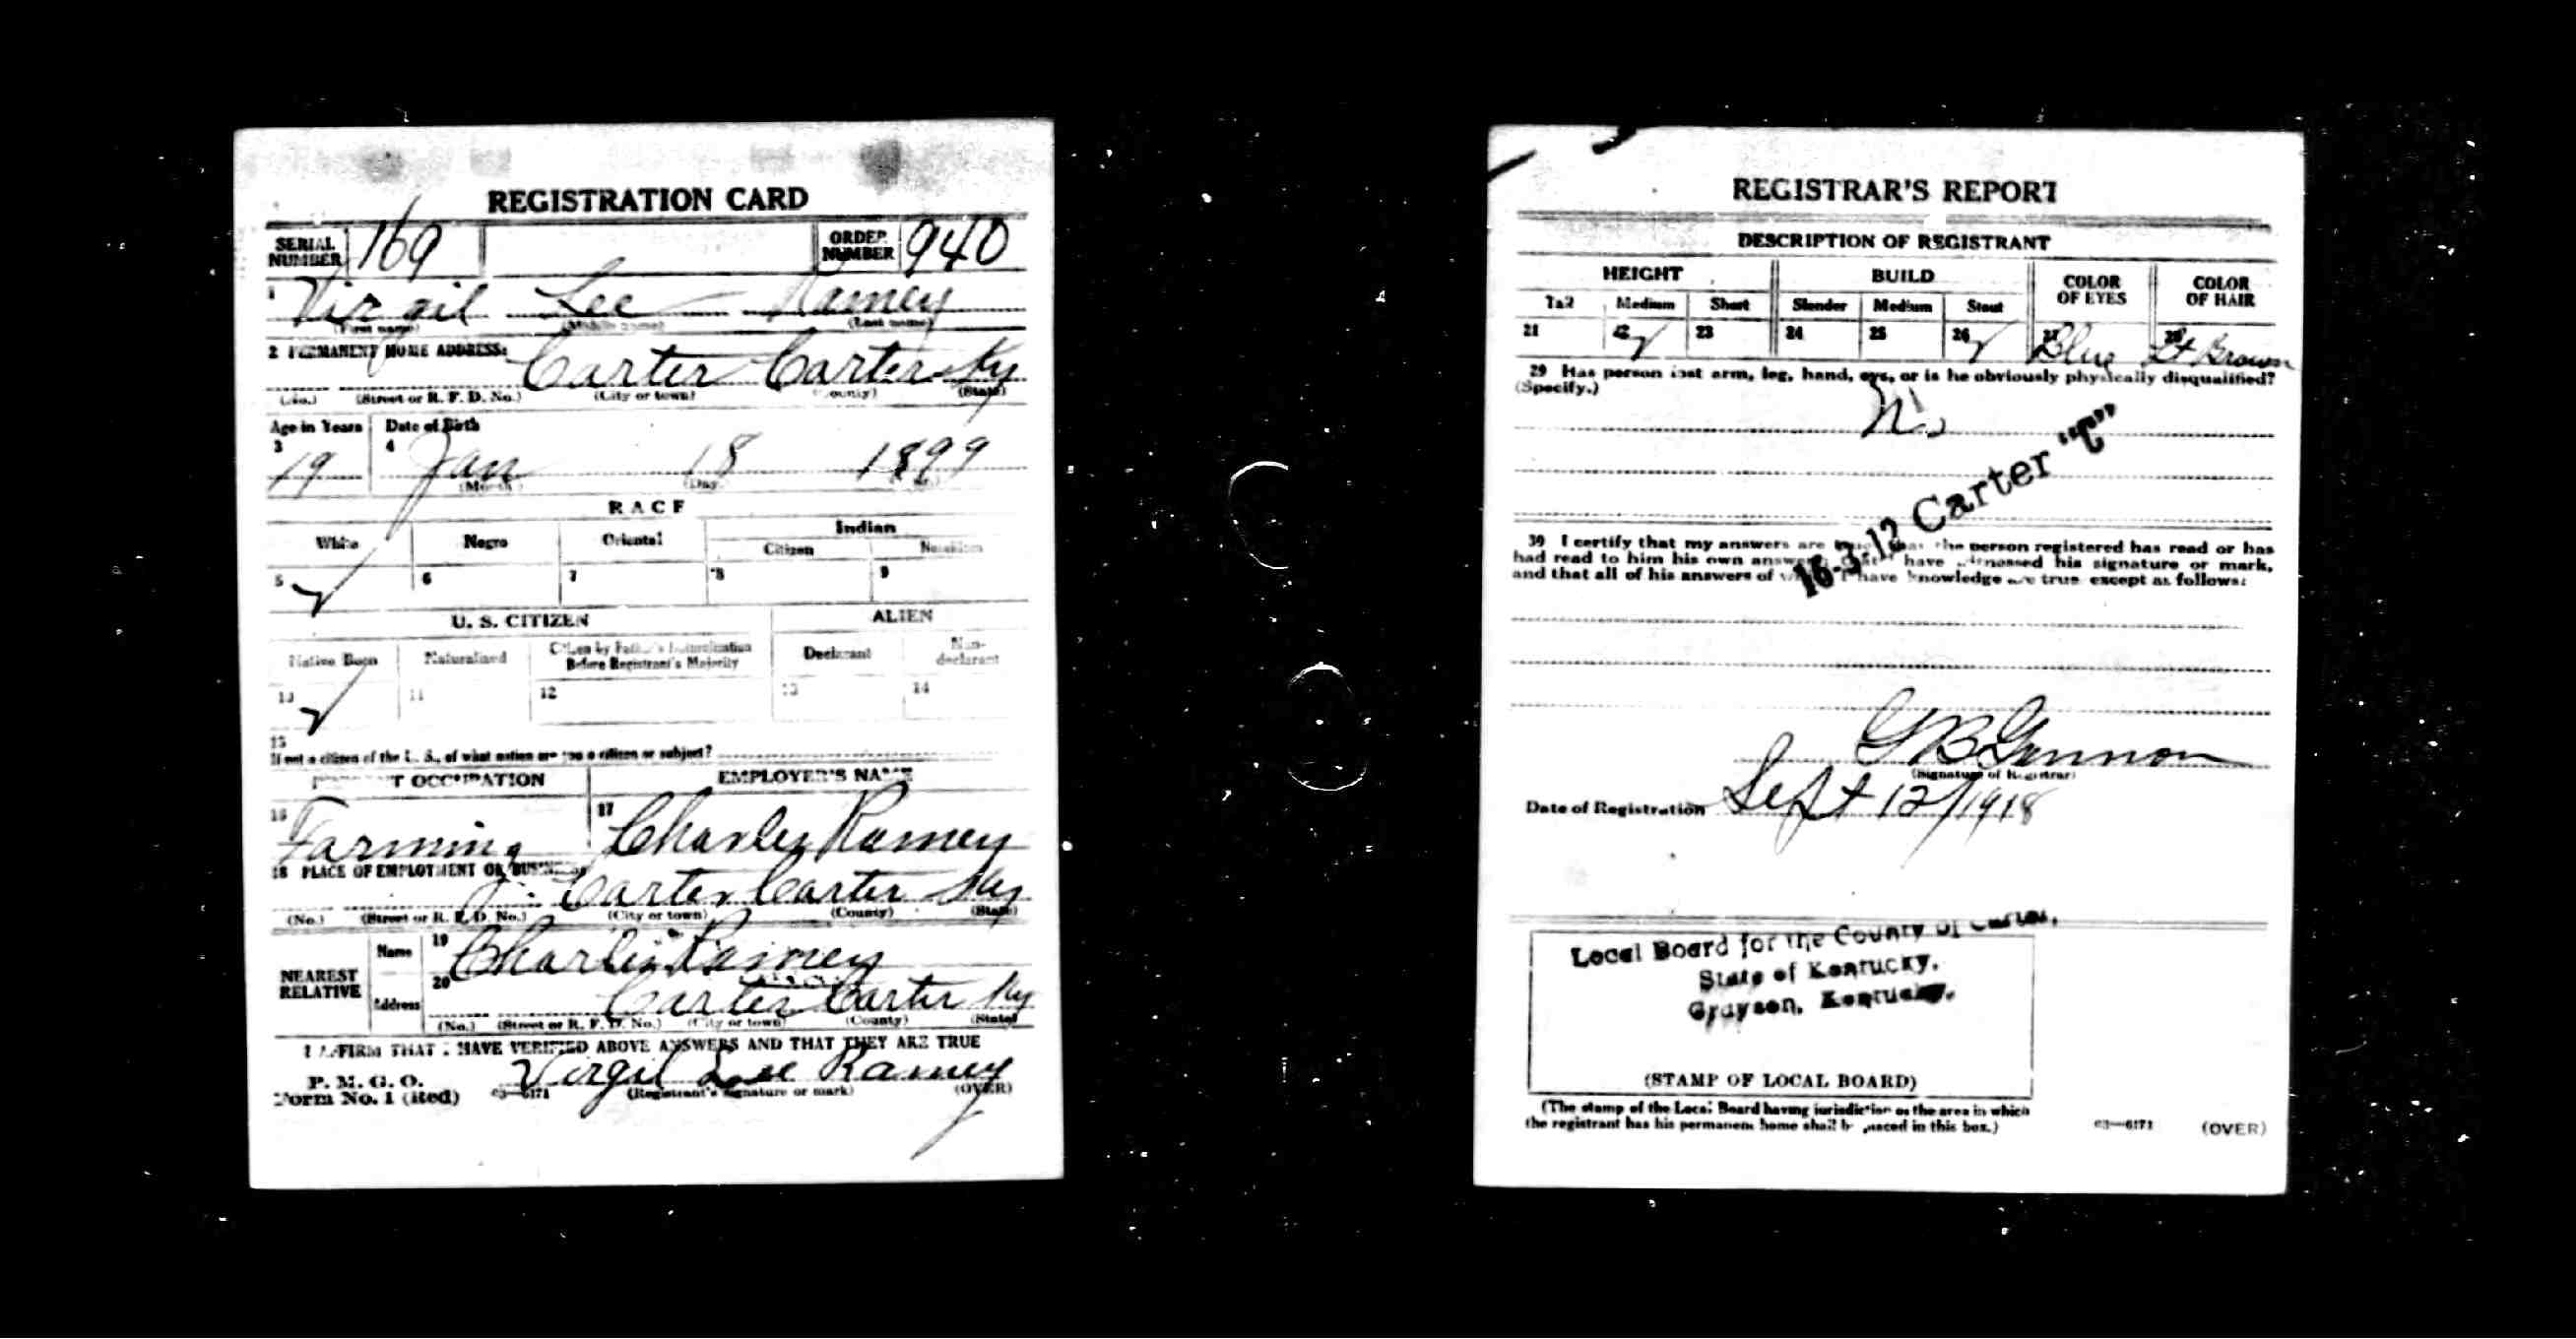 REGISTRATION CARD
SERIAL NUMBER 169 ORDER NUMBER 940
1 Virgil Lee Ramey
(First name) (Middle name) (Last name)
2 PERMANENT HOME ADDRESS:
Carter Carter Ky
(No.) (Street or R. F. D. No.) (City or town) (County) (State)
Age in Years Date of Birth
3 4
19 Jan 18 1899
(Month) (Day)
RACE
White Negro Oriental Indian
Citizen
5 6 7 8 9
U. S. CITIZEN ALIEN
Native Born Naturalized Citizen by Father's Naturalization Before Registrant's Majority Declarant Non-declarant
10 11 12 13 14
15
If not a citizen of the U. S., of what nation are you a citizen or subject?
OCCUPATION EMPLOYER'S NAME
16 17
Farming Charley Ramey
18 PLACE OF EMPLOYMENT OR BUSINESS:
Carter Carter Ky
(No.) (Street or R. F. D. No.) (City or town) (County) (State)
NEAREST RELATIVE
Name 19 Charlie Ramey
Address 20 Carter Carter Ky
(No.) (Street or R. F. D. No.) (City or town) (County) (State)
I AFFIRM THAT I HAVE VERIFIED ABOVE ANSWERS AND THAT THEY ARE TRUE
P. M. G. O.
Form No. 1 (Red) 03—6171 Virgil Lee Ramey
(Registrant's signature or mark) (OVER)
REGISTRAR'S REPORT
DESCRIPTION OF REGISTRANT
HEIGHT BUILD COLOR OF EYES COLOR OF HAIR
Tall Medium Short Slender Medium Stout
21 22 23 24 25 26 27 Blue 28 Lt Brown
29 Has person lost arm, leg, hand, eye, or is he obviously physically disqualified?
(Specify.)
No
16-3-12 Carter "C"
30 I certify that my answers are true, that the person registered has read or has
had read to him his own answers, that I have witnessed his signature or mark,
and that all of his answers of which I have knowledge are true except as follows:
G B Gannon
(Signature of Registrar)
Date of Registration Sept 12/1918
Local Board for the County of Carter,
State of Kentucky,
Grayson, Kentucky.
(STAMP OF LOCAL BOARD)
(The stamp of the Local Board having jurisdiction of the area in which
the registrant has his permanent home shall be placed in this box.)
03—6171 (OVER)